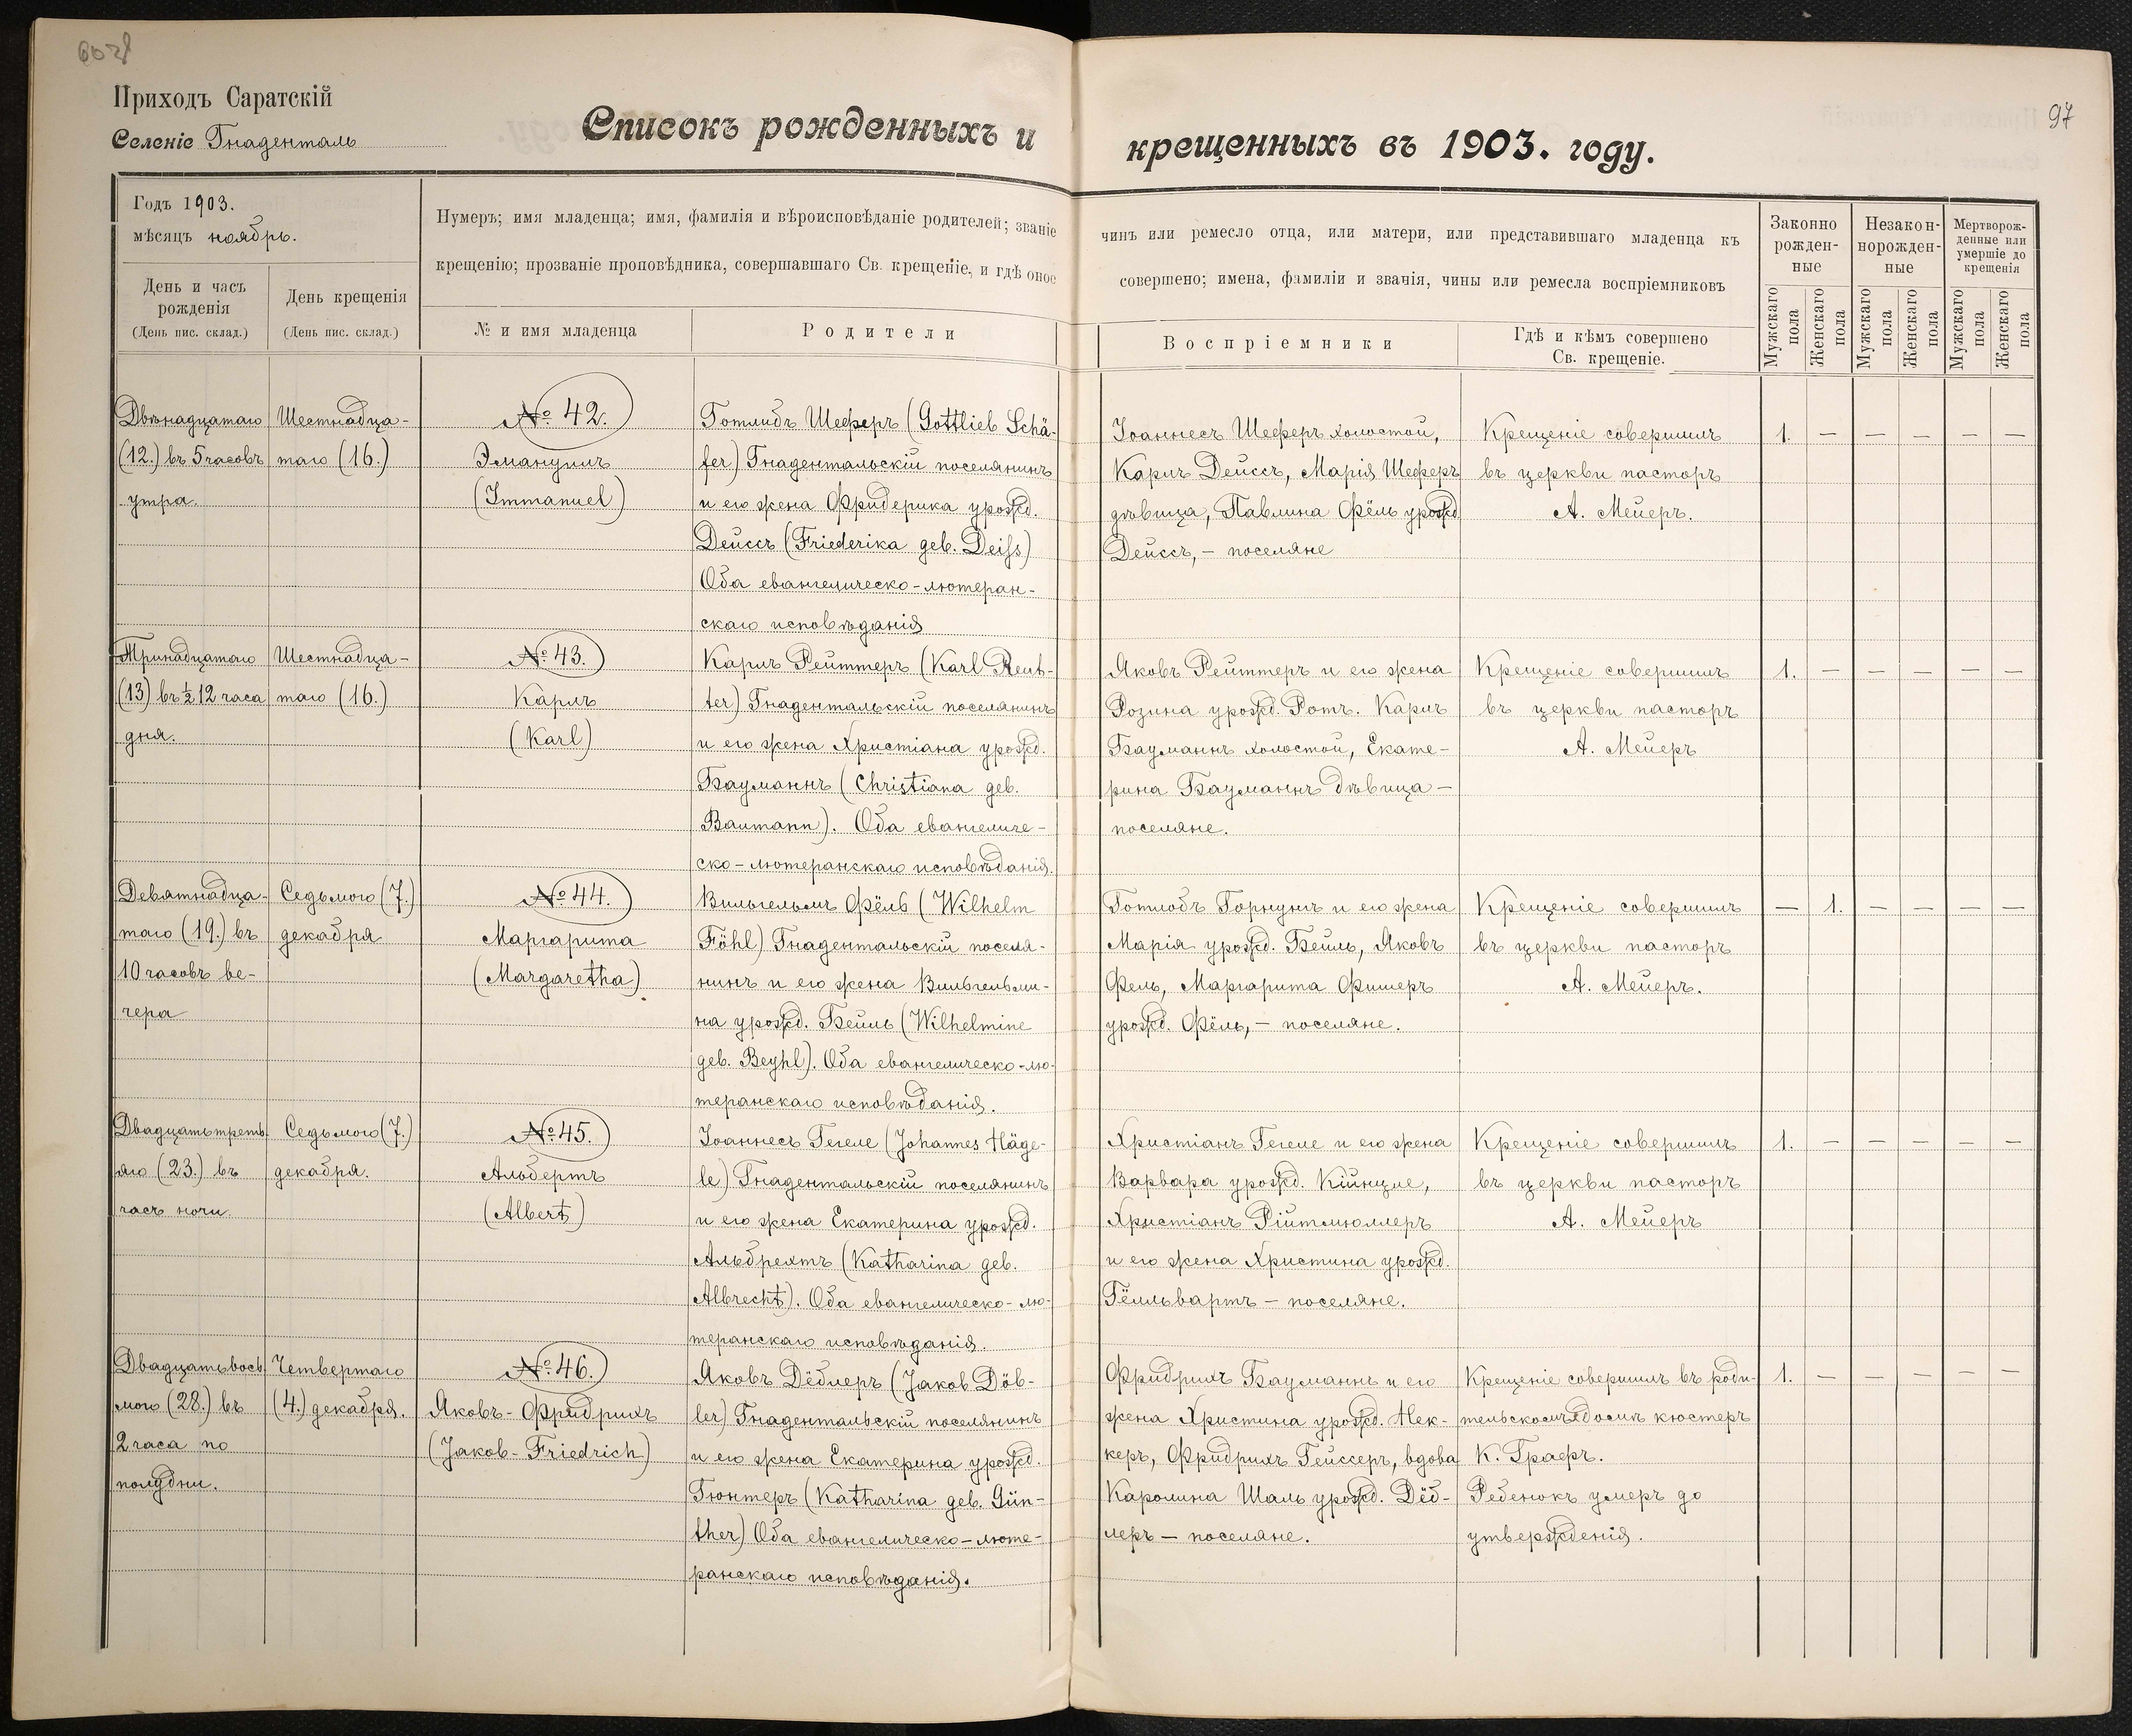 97
Приходъ Саратскій
Селеніе Гнаденталь
Списокъ рожденныхъ и крещенныхъ въ 1903. году.
Годъ 1903.
мѣсяцъ ноябрь.
День и часъ
рожденія
(День пис. склад.)
День крещенія
(День пис. склад.)
Нумеръ; имя младенца; имя, фамилія и вѣроисповѣданіе родителей; званіе
крещенію; прозваніе проповѣдника, совершавшаго Св. крещеніе, и гдѣ оное
№ и имя младенца
Родители
чинъ или ремесло отца, или матери, или представившаго младенца къ
совершено; имена, фамиліи и званія, чины или ремесла воспріемниковъ
Воспріемники
Гдѣ и кѣмъ совершено
Св. крещеніе.
Законно
рожден-
ные
Незакон-
норожден-
ные
Мертворож-
денные или
умершіе до
крещенія
Мужскаго
пола
Женскаго
пола
Мужскаго
пола
Женскаго
пола
Мужскаго
пола
Женскаго
пола
Двѣнадцатаго
(12.) въ 5 часовъ
утра.
Шестнадца-
таго (16.)
№ 42.
Эмануилъ
(Immanuel)
Готлибъ Шеферъ (Gottlieb Schä-
fer) Гнадентальскій поселянинъ
и его жена Фридерика урожд.
Дейссъ (Friederika geb. Deiss)
Оба евангелическо-лютеран-
скаго исповѣданія
Іоаннесъ Шеферъ холостой,
Карлъ Дейссъ, Марія Шеферъ
дѣвица, Павлина Фёль урожд.
Дейссъ, - поселяне
Крещеніе совершилъ
въ церкви пасторъ
А. Мейеръ.
1. — — — — —
Тринадцатаго
(13) въ ½ 12 часа
дня.
Шестнадца-
таго (16.)
№ 43.
Карлъ
(Karl)
Карлъ Рейттеръ (Karl Reut-
ter) Гнадентальскій поселянинъ
и его жена Христіана урожд.
Бауманнъ (Christiana geb.
Baumann). Оба евангеличе-
ско-лютеранскаго исповѣданія.
Яковъ Рейттеръ и его жена
Розина урожд. Ротъ. Карлъ
Бауманнъ холостой, Екате-
рина Бауманнъ дѣвица —
поселяне.
Крещеніе совершилъ
въ церкви пасторъ
А. Мейеръ
1. — — — — —
Девятнадца-
таго (19.) въ
10 часовъ ве-
чера
Седьмого (7.)
декабря
№ 44.
Маргарита
(Margaretha)
Вильгельмъ Фёль (Wilhelm
Föhl) Гнадентальскій поселя-
нинъ и его жена Вильгельми-
на урожд. Бейль (Wilhelmine
geb. Beyhl). Оба евангелическо-лю-
теранскаго исповѣданія.
Готлобъ Горнунъ и его жена
Марія урожд. Бейль, Яковъ
Фель, Маргарита Фишеръ
урожд. Фёль, - поселяне.
Крещеніе совершилъ
въ церкви пасторъ
А. Мейеръ.
— 1. — — — —
Двадцатьтреть-
яго (23.) въ
часъ ночи.
Седьмого (7.)
декабря.
№ 45.
Альбертъ
(Albert)
Іоаннесъ Гегеле (Johannes Häge-
le) Гнадентальскій поселянинъ
и его жена Екатерина урожд.
Альбрехтъ (Katharina geb.
Albrecht). Оба евангелическо-лю-
теранскаго исповѣданія.
Христіанъ Гегеле и его жена
Варвара урожд. Кійнцле,
Христіанъ Рійтмюллеръ
и его жена Христина урожд.
Гёлльвартъ — поселяне.
Крещеніе совершилъ
въ церкви пасторъ
А. Мейеръ
1. — — — — —
Двадцатьвось-
мого (28.) въ
2 часа по
полудни.
Четвертаго
(4.) декабря.
№ 46.
Яковъ-Фридрихъ
(Jakob-Friedrich)
Яковъ Дёблеръ (Jakob Döb-
ler) Гнадентальскій поселянинъ
и его жена Екатерина урожд.
Гюнтеръ (Katharina geb. Gün-
ther) Оба евангелическо-люте-
ранскаго исповѣданія.
Фридрихъ Бауманнъ и его
жена Христина урожд. Нек-
керъ, Фридрихъ Гейссеръ, вдова
Каролина Шаль урожд. Дёб-
леръ — поселяне.
Крещеніе совершилъ въ роди-
тельскомъ домѣ кюстеръ
К. Графъ.
Ребенокъ умеръ до
утвержденія.
1. — — — — —